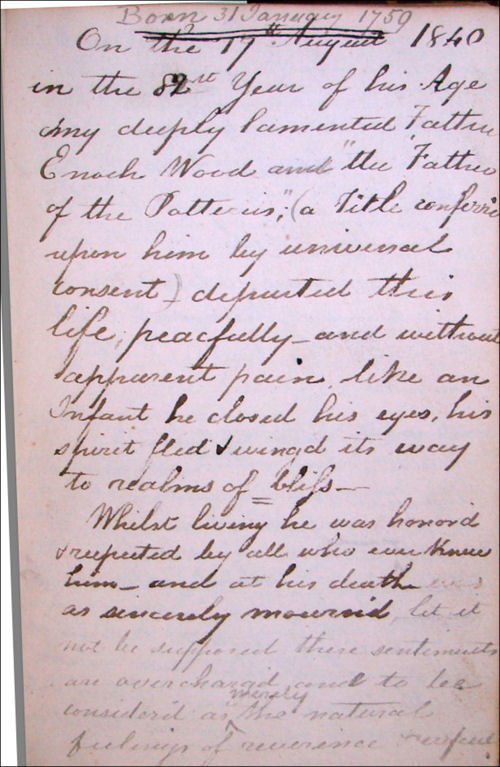 Born 31 January 1759
On the 17th August 1840
in the 82st Year of his Age
my deeply lamented Father
Enoch Wood and "the Father
of the Potteries," (a Title conferr
upon him by universal
consent) departed this
life, peacfully - and without
apparent pain, like an
Infant he closed his eyes, his
spirit fled & wingd its way
to realms of bliss -
Whilst living he was honord
& respected by all who ever knew
him - and at his death was
as sincerely mournd, let it
not be supposed these sentiments
are overchargd and to be
considerd as merely the natural
feelings of reverence